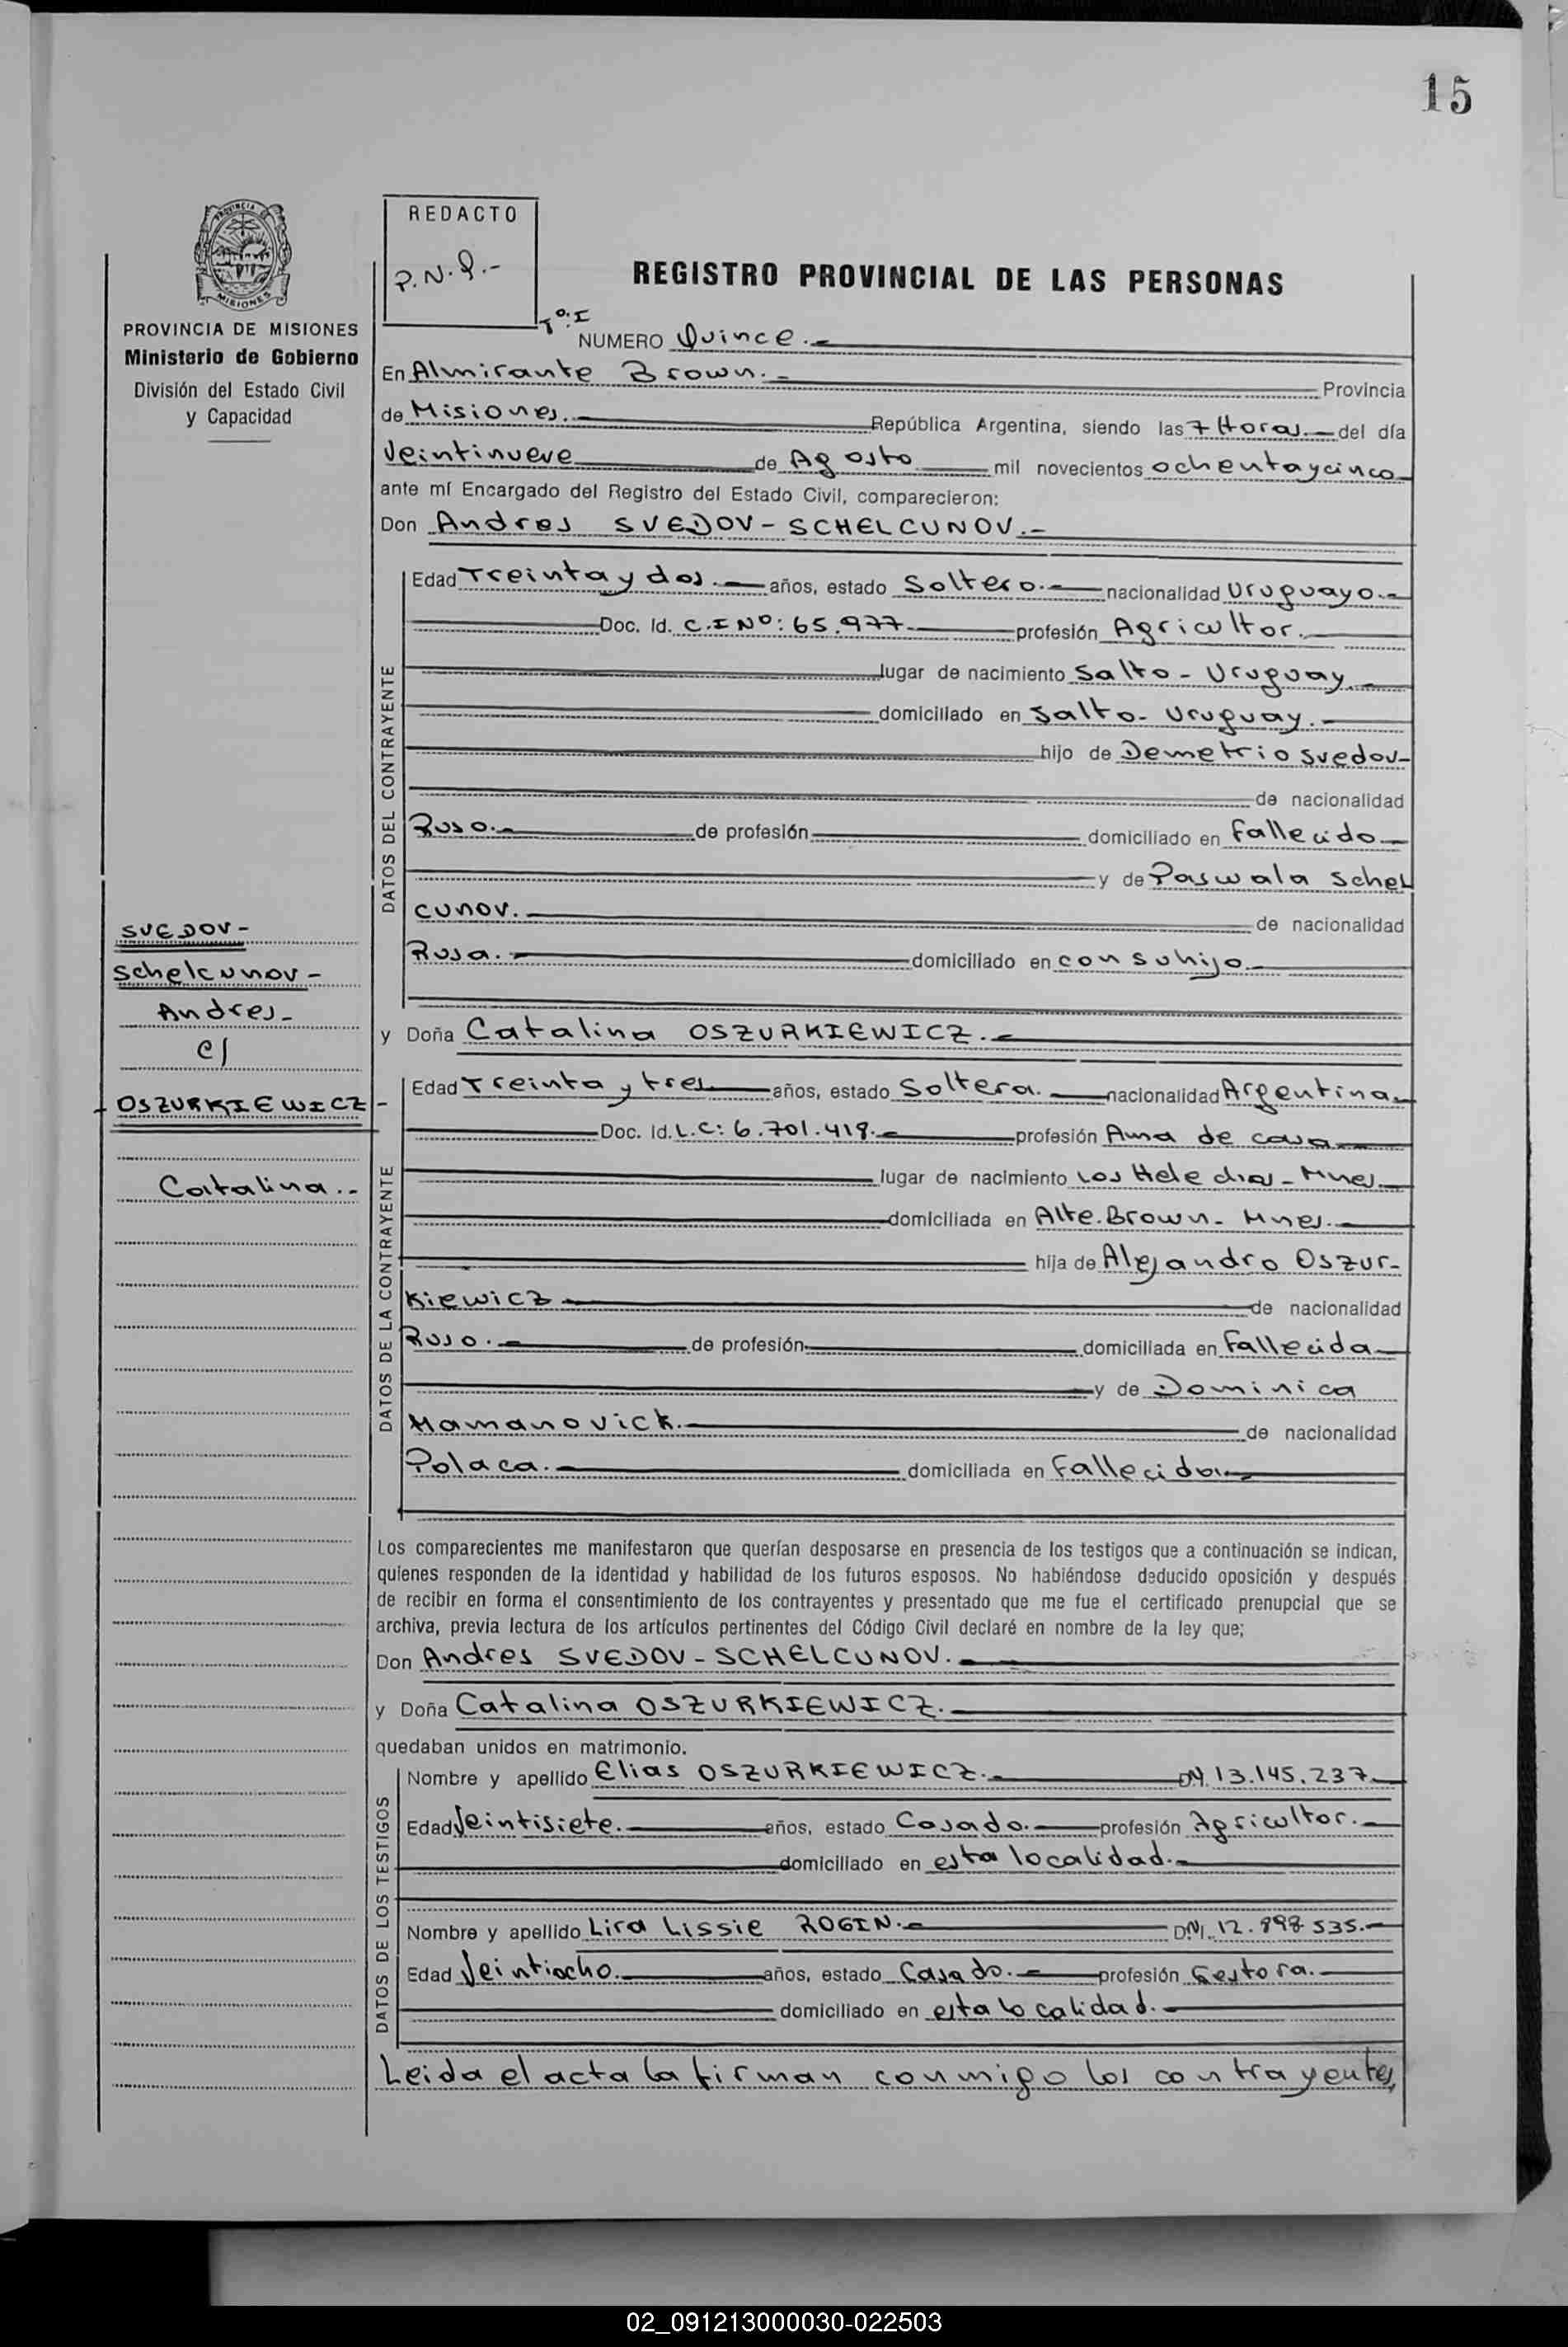 15
REDACTO
P.N.Q.-
REGISTRO PROVINCIAL DE LAS PERSONAS
Tº:I
NUMERO Quince.-
PROVINCIA DE MISIONES
Ministerio de Gobierno
División del Estado Civil
y Capacidad
En Almirante Brown.- Provincia
de Misiones. República Argentina, siendo las 7 Horas. del día
Veintinueve de Agosto mil novecientos ochentaycinco
ante mí Encargado del Registro del Estado Civil, comparecieron:
Don Andres SVEDOV-SCHELCUNOV.-
DATOS DEL CONTRAYENTE
Edad Treinta y dos. años, estado Soltero. nacionalidad Uruguayo.-
Doc. Id. C.I Nº: 65.977- profesión Agricultor.
lugar de nacimiento Salto - Uruguay.-
domiciliado en Salto- Uruguay.-
hijo de Demetrio Svedov-
de nacionalidad
Ruso.- de profesión domiciliado en Fallecido-
y de Paswala Schel
cunov. de nacionalidad
Rusa. domiciliado en con suhijo-
SVEDOV-
Schelcunov-
Andres-
c/
OSZURKIEWICZ-
Catalina.-
y Doña Catalina OSZURKIEWICZ.-
DATOS DE LA CONTRAYENTE
Edad Treinta y tres años, estado Soltera. nacionalidad Argentina
Doc. Id. L.C: 6.701.419.- profesión Ama de casa
lugar de nacimiento Los Helechos-Mnes
domiciliada en Alte.Brown- Mnes.
hija de Alejandro Oszur-
kiewicz de nacionalidad
Ruso.- de profesión domiciliada en Fallecida
y de Dominica
Mamanovick. de nacionalidad
Polaca. domiciliada en Fallecida.
Los comparecientes me manifestaron que querían desposarse en presencia de los testigos que a continuación se indican,
quienes responden de la identidad y habilidad de los futuros esposos. No habiéndose deducido oposición y después
de recibir en forma el consentimiento de los contrayentes y presentado que me fue el certificado prenupcial que se
archiva, previa lectura de los artículos pertinentes del Código Civil declaré en nombre de la ley que;
Don Andres SVEDOV-SCHELCUNOV.
y Doña Catalina OSZURKIEWICZ.
quedaban unidos en matrimonio.
DATOS DE LOS TESTIGOS
Nombre y apellido Elias OSZURKIEWICZ.- DNI 13.145.237.
Edad Veintisiete. años, estado Casado. profesión Agricultor.
domiciliado en esta localidad.-
Nombre y apellido Lira Lissie ROGIN.- DNI. 12.898 535.-
Edad Veintiocho. años, estado Casado.- profesión Gestora.
domiciliado en esta localidad.
Leida el acta la firman conmigo los contrayentes,
02_091213000030-022503